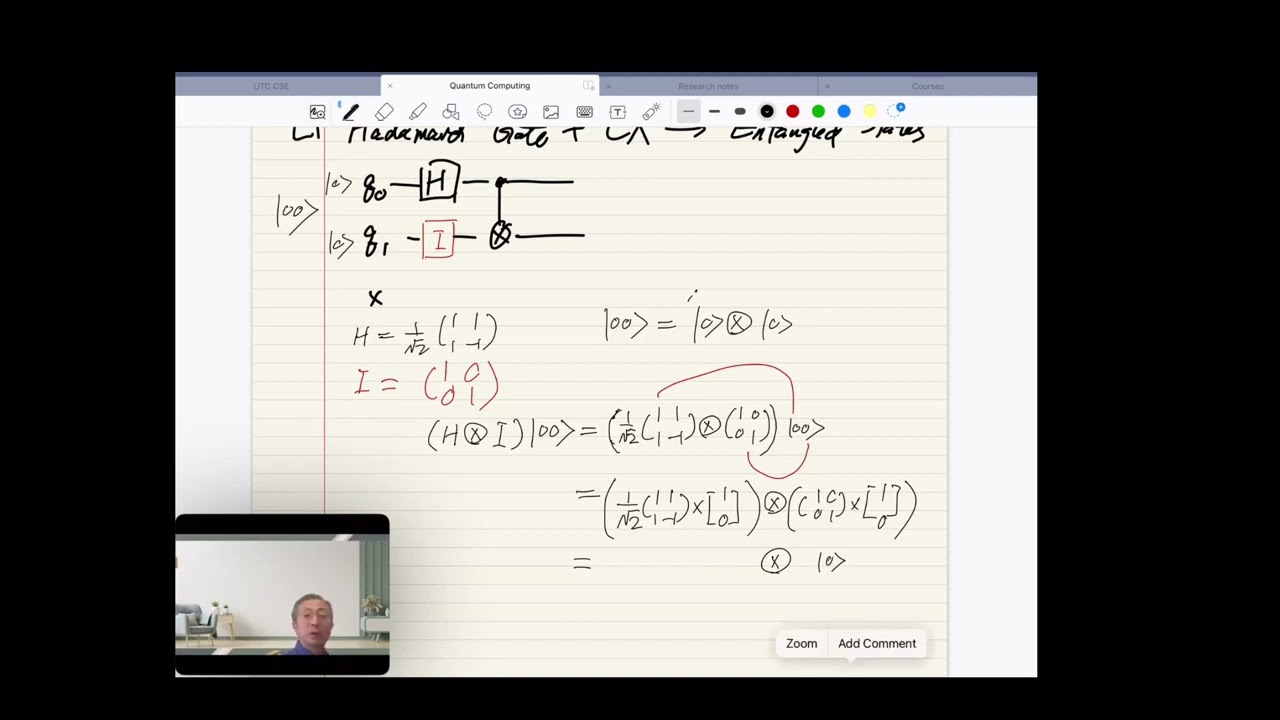 UTC CSE × Quantum Computing × Research notes × Courses
T
Hadamard Gate + CX → Entangled States
|0⟩ q₀ H
|00⟩
|0⟩ q₁ I ⊗
x
H = 1/√2 (1 1 1 -1) |00⟩ = |0⟩ ⊗ |0⟩
I = (1 0 0 1)
(H ⊗ I) |00⟩ = (1/√2 (1 1 1 -1) ⊗ (1 0 0 1)) |00⟩
= (1/√2 (1 1 1 -1) × [1 0]) ⊗ ((1 0 0 1) × [1 0])
= ⊗ |0⟩
Zoom Add Comment